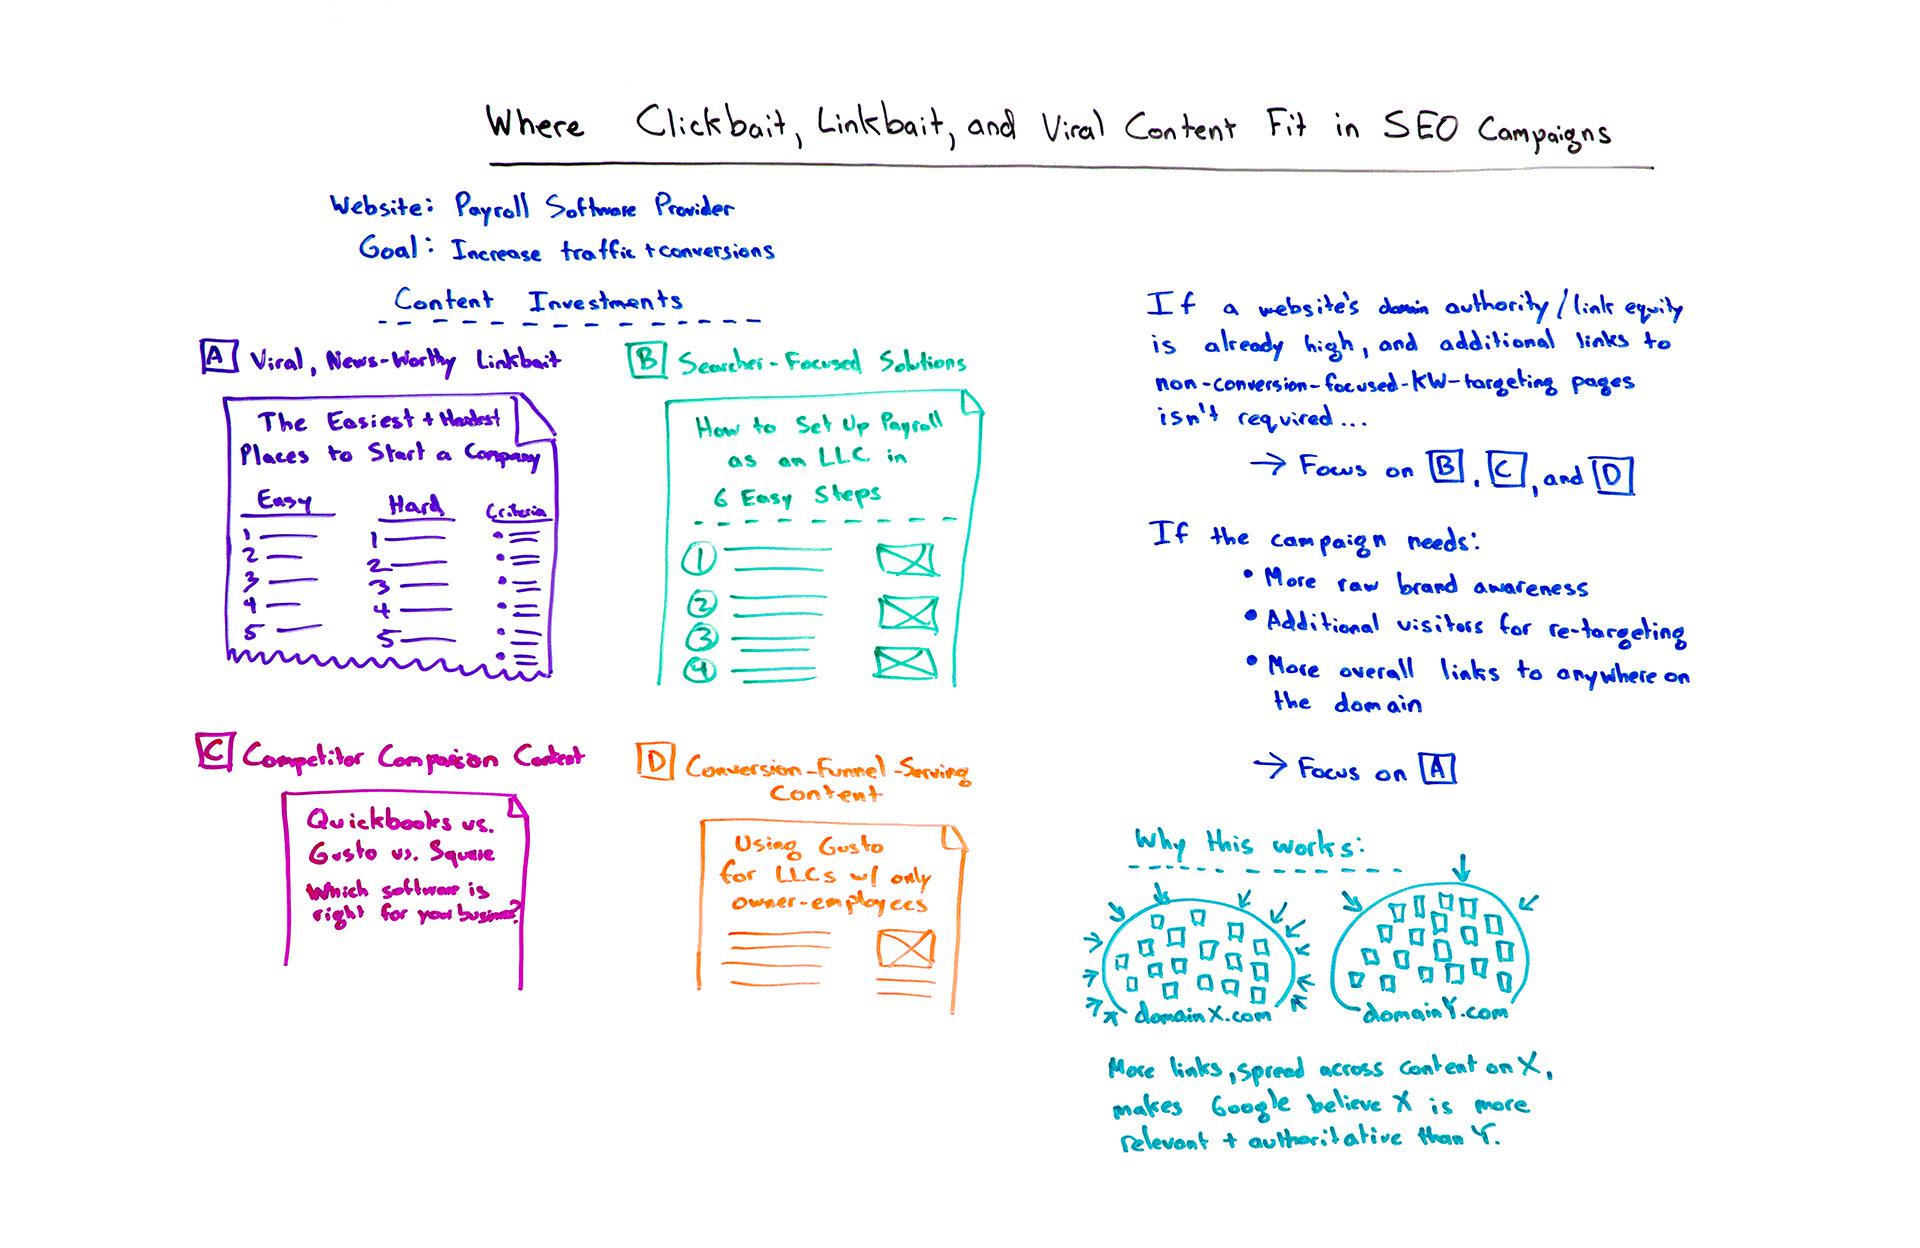 Where Clickbait, Linkbait, and Viral Content Fit in SEO Campaigns
Website: Payroll Software Provider
Goal: Increase traffic + conversions
Content Investments
A Viral, News-Worthy Linkbait
The Easiest + Hardest
Places to Start a Company
Easy Hard Criteria
1 1
2 2
3 3
4 4
5 5
B Searcher-Focused Solutions
How to Set Up Payroll
as an LLC in
6 Easy Steps
1
2
3
4
C Competitor Comparison Content
Quickbooks vs.
Gusto vs. Square
Which software is
right for your business?
D Conversion-Funnel-Serving
Content
Using Gusto
for LLCs w/ only
owner-employees
If a website's domain authority/link equity
is already high, and additional links to
non-conversion-focused-KW-targeting pages
isn't required...
→ Focus on B, C, and D
If the campaign needs:
• More raw brand awareness
• Additional visitors for re-targeting
• More overall links to anywhere on
the domain
→ Focus on A
Why this works:
domainX.com domainY.com
More links, spread across content on X,
makes Google believe X is more
relevant + authoritative than Y.